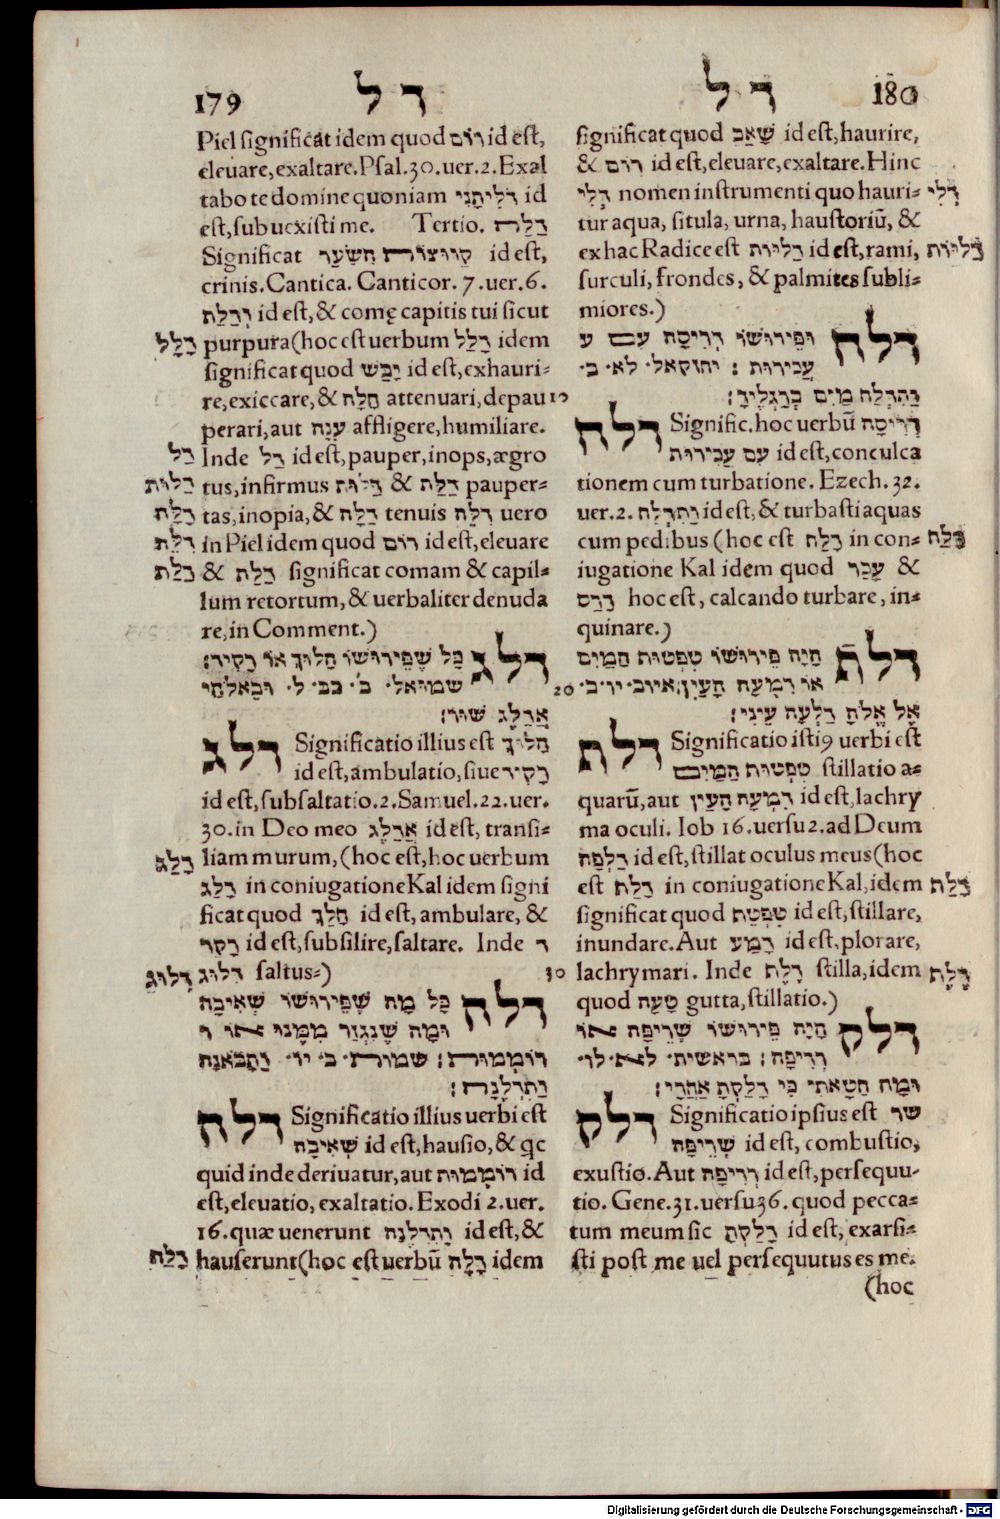 179 דל
Piel significat idem quod רוֹם id est,
eleuare, exaltare. Psal. 30. uer. 2. Exal
tabo te domine quoniam דִּלִּיתָנִי id
est, subuexisti me. Tertio. דַּלַּת
Significat קְווּצוֹת הַשֵּׂעָר id est,
crinis. Cantica. Canticor. 7. uer. 6.
וְדַלַּת id est, & comę capitis tui sicut
דָּלַל purpura (hoc est uerbum דָּלַל idem
significat quod יָבֵשׁ id est, exhauri-
re, exiccare, & חָלָה attenuari, depau 10
perari, aut עָנָה affligere, humiliare.
דַל Inde דַל id est, pauper, inops, ægro
דַלוּת tus, infirmus דַלוּת & דַלַּת pauper-
דַלַּת tas, inopia, & דַלַּת tenuis דִלָּה uero
דִלָּה in Piel idem quod רוֹם id est, eleuare
דַלַּת & דַלַּת significat comam & capil-
lum retortum, & uerbaliter denuda
re, in Comment.)
דלג כָּל שֶׁפֵּירוּשׁוֹ הִלּוּךְ אוֹ דִקּוּר׃
שמואל. ב. כב. ל. וּבֵאלֹהַי
אֲדַלֶּג שׁוּר׃
דלג Significatio illius est הִלּוּךְ
id est, ambulatio, siue
id est, subsaltatio. 2. Samuel. 22. uer.
30. in Deo meo אֲדַלֵּג id est, transi-
דָלַג liam murum, (hoc est, hoc uerbum
דָלַג in coniugatione Kal idem signi
ficat quod הָלַךְ id est, ambulare, &
רָקַד id est, subsilire, saltare. Inde ד
דִלוּג דִלוּג saltus-) 30
דלה כָּל מַה שֶׁפֵּירוּשׁוֹ שְׁאִיבָה
וּמַה שֶׁנִּגְזַר מִמֶּנּוּ אוֹ ר
רוֹמְמוּת׃ שמות. ב. יו. וַתָּבֹאנָה
וַתִּדְלֶנָה׃
דלה Significatio illius uerbi est
שְׁאִיבָה id est, hausio, & qc
quid inde deriuatur, aut רוֹמְמוּת id
est, eleuatio, exaltatio. Exodi 2. uer.
16. quæ uenerunt וַתִּדְלֶנָה id est, &
דָלָה hauserunt (hoc est uerbū דָלָה idem
דל 180
significat quod שָׁאַב id est, haurire,
& רוֹם id est, eleuare, exaltare. Hinc
דְּלִי nomen instrumenti quo hauri- דְּלִי
tur aqua, situla, urna, haustoriū, &
ex hac Radice est דָלִיּוֹת id est, rami, דָלִיּוֹת
surculi, frondes, & palmites subli-
miores.)
דלח וּפֵירוּשׁוֹ דְרִיסָה עִם ע
עֲכִירוּת׃ יחזקאל. לא. ב.
וַתִּדְלַח מַיִם בְּרַגְלֶיךָ׃
דלח Signific. hoc uerbū דְרִיסָה
עִם עֲכִירוּת id est, conculca
tionem cum turbatione. Ezech. 32.
uer. 2. וַתִּדְלַח id est, & turbasti aquas
cum pedibus (hoc est דָלַח in con- דָלַח
iugatione Kal idem quod עָכַר &
דָרַס hoc est, calcando turbare, in-
quinare.)
דלף הָיָה פֵירוּשׁוֹ טִפְטוּף הַמַּיִם
20 אוֹ דִמְעַת הָעַיִן׃ איוב. יו. ב.
אֶל אֱלֹהַּ דָלְפָה עֵינִי׃
דלף Significatio isti9 uerbi est
טִפְטוּף הַמַּיִם stillatio a-
quarū, aut דִמְעַת הָעַיִן id est, lachry
ma oculi. Iob 16. uersu 2. ad Deum
דָלְפָה id est, stillat oculus meus (hoc
est דָלַף in coniugatione Kal, idem דָלַף
significat quod טָפַף id est, stillare,
inundare. Aut דָמַע id est, plorare,
lachrymari. Inde דֶלֶף stilla, idem דֶלֶף
quod טִפָּה gutta, stillatio.)
דלק הָיָה פֵירוּשׁוֹ שְׂרֵיפָה אוֹ
רְדִיפָה׃ בראשית. לא. לו.
וּמַה חַטָּאתִי כִּי דָלַקְתָּ אַחֲרָי׃
דלק Significatio ipsius est שר
שְׂרֵיפָה id est, combustio,
exustio. Aut רְדִיפָה id est, persequu-
tio. Gene. 31. uersu 36. quod pecca-
tum meum sic דָלַקְתָּ id est, exarsi-
sti post me uel persequutus es me.
(hoc
Digitalisierung gefördert durch die Deutsche Forschungsgemeinschaft - DFG